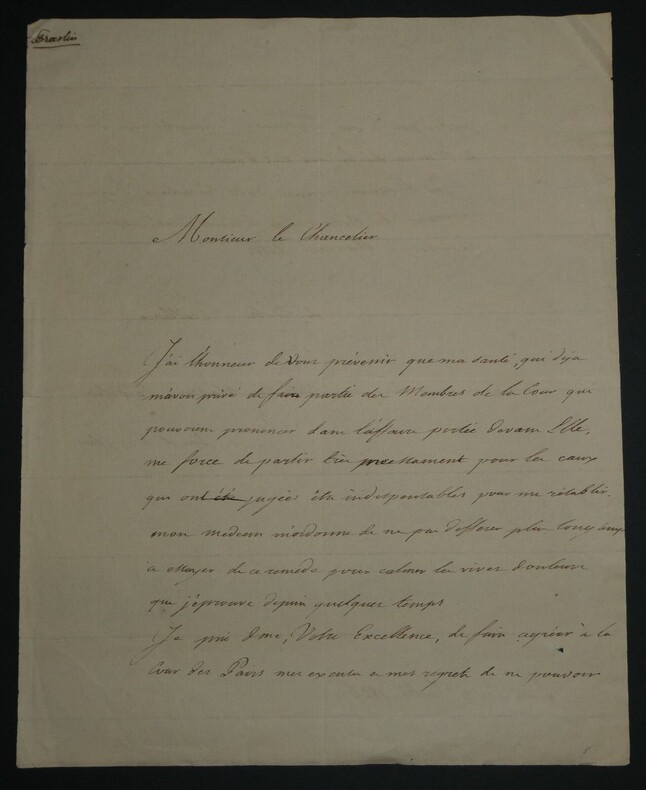 Praslin
Monsieur le Chancelier
J'ai l'honneur de vous prévenir que ma santé, qui deja
m'avoit privé de faire partie des Membres de la Cour qui
pouvoient prononcer dans l'affaire portée devant Elle,
me force de partir très promptement pour les eaux
qui ont été jugées être indispensables pour me rétablir.
mon medecin m'ordonne de ne pas differer plus longtemps
a essayer de ce remede pour calmer les vives douleurs
que j'éprouve depuis quelques temps
Je prie donc, Votre Excellence, de faire agréer à la
Cour des Pairs mes excuses et mes regrets de ne pouvoir